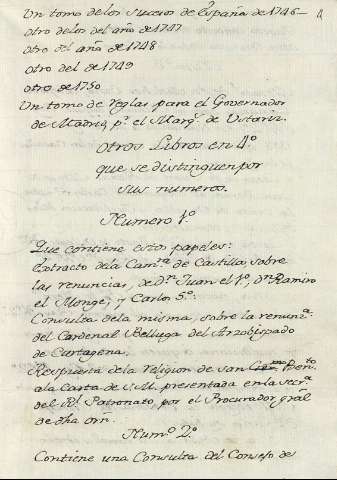 Un tomo de los sucesos de España de 1746 –
Otro de los del año de 1747
otro del año de 1748
otro del de 1749
otro de 1750
Un tomo de Reglas para el Governador
de Madrid, pr. el Marqs. de Ustariz.
Otros Libros en 4º
que se distinguen por
sus numeros.
Numero 1º
Que contiene estos papeles:
Extracto dela Camra. de Castilla, sobre
las renuncias, de Dn. Juan el 1º, Dn. Ramiro
el Monge, y Carlos 5º:
Consulta dela misma, sobre la renuna.
del Cardenal Belluga del Arzobispado
de Cartagena,
Respuesta de la Religion de san Bento.
ala Carta de S.M. presentada en la secra.
del Rl. Patronato, por el Procurador gral
de dha orn.
Numº 2º
Contiene una Consulta del Consejo de